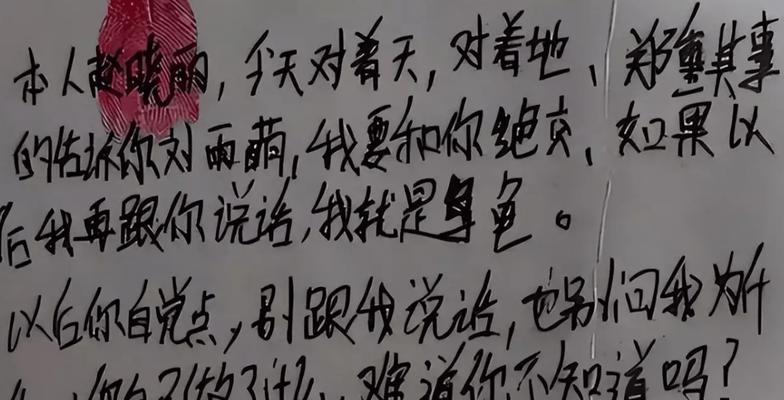 本人赵晓丽,今天对着天,对着地、郑重其事
的告诉你刘雨萌,我要和你绝交、如果以
后我再跟你说话,我就是龟。
以后你自觉点,别跟我说话,也别问我为什
么,你自己做了什么,难道你不知道吗?